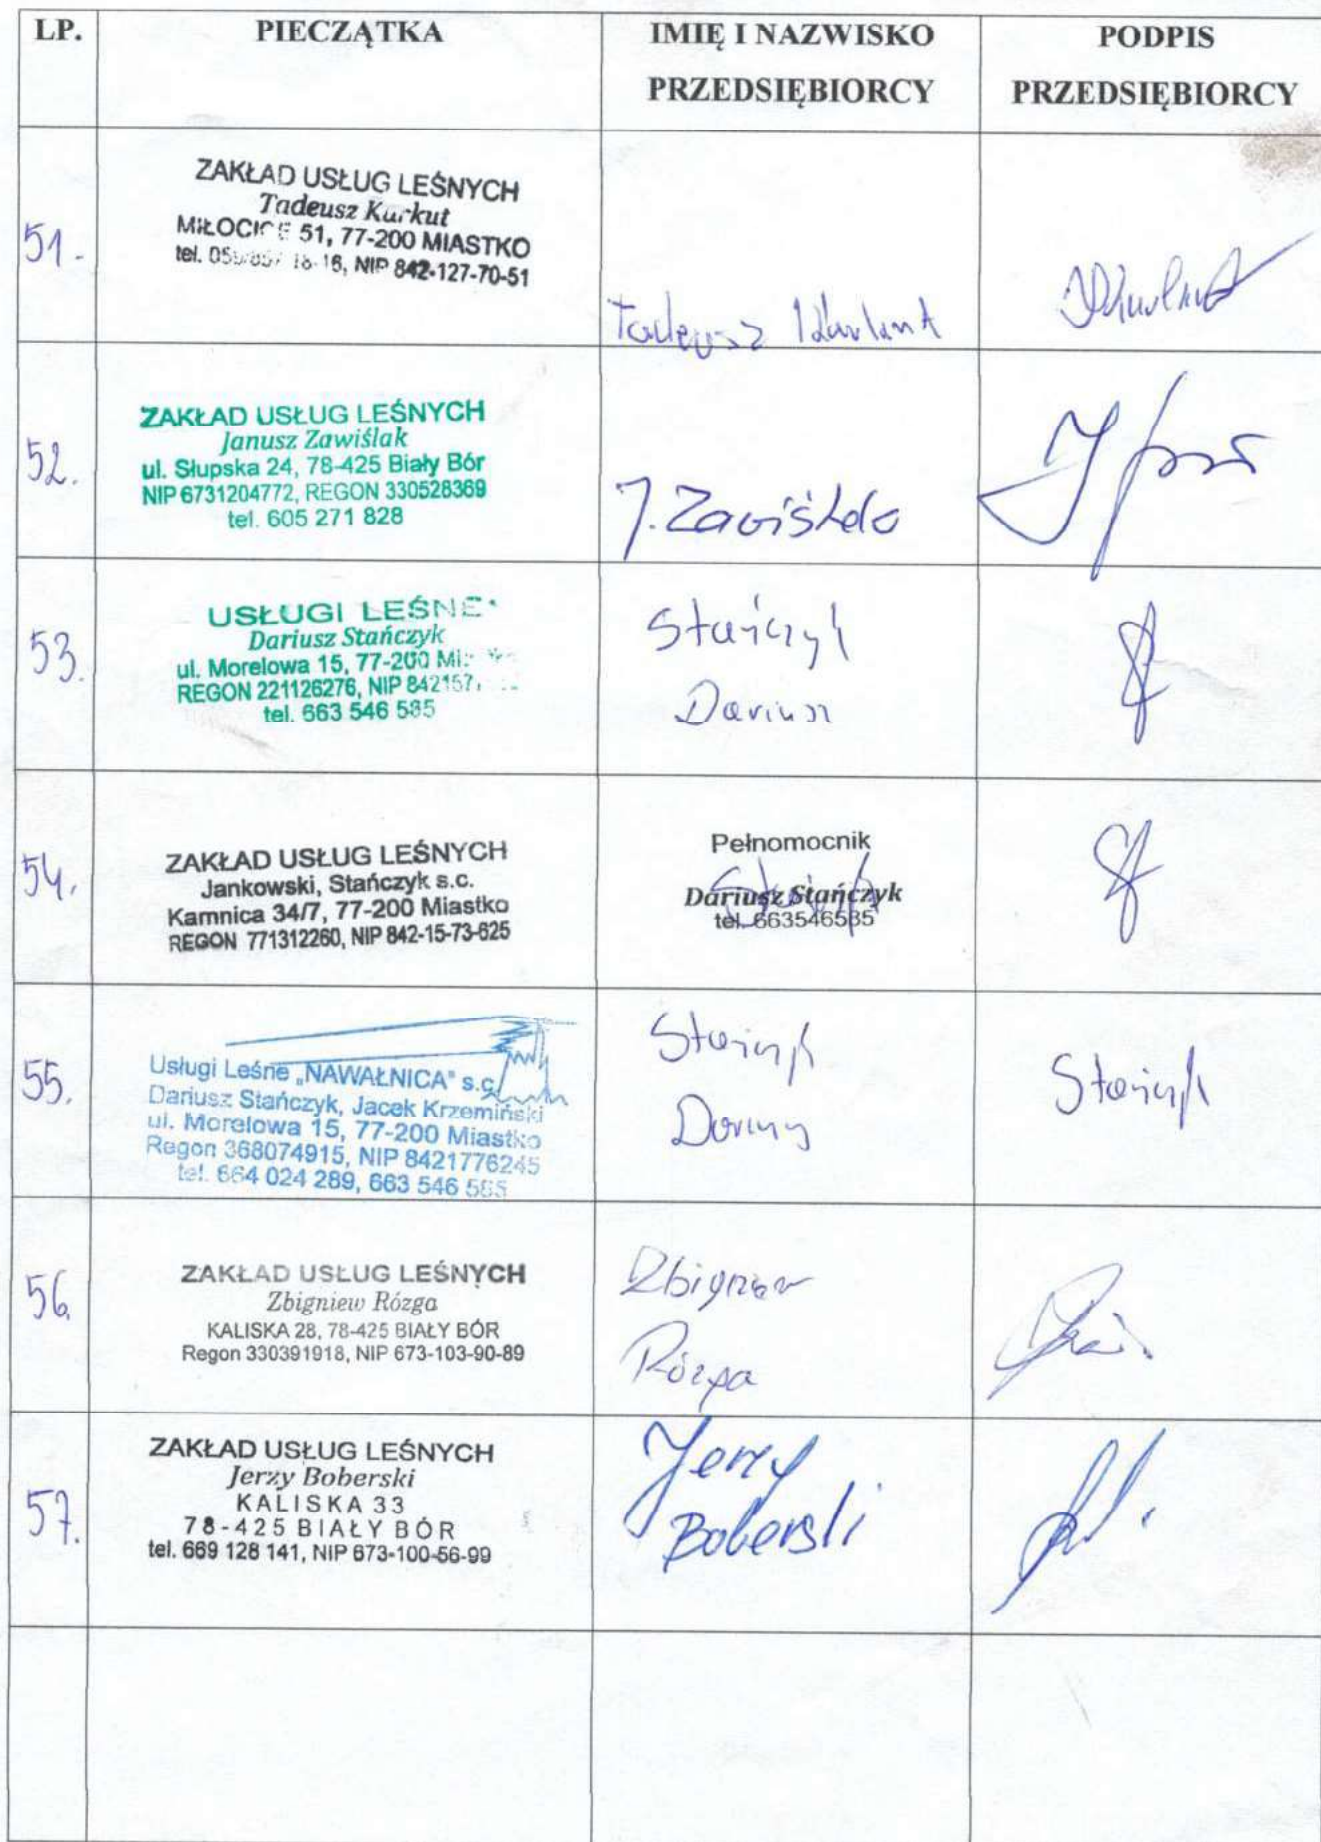 LP.
PIECZĄTKA
IMIĘ I NAZWISKO
PRZEDSIĘBIORCY
PODPIS
PRZEDSIĘBIORCY
51.
ZAKŁAD USŁUG LEŚNYCH
Tadeusz Kurkut
MIŁOCICE 51, 77-200 MIASTKO
tel. 18-16, NIP 842-127-70-51
Tadeusz
52.
ZAKŁAD USŁUG LEŚNYCH
Janusz Zawiślak
ul. Słupska 24, 78-425 Biały Bór
NIP 6731204772, REGON 330528369
tel. 605 271 828
J. Zawiślak
53.
USŁUGI LEŚNE
Dariusz Stańczyk
ul. Morelowa 15, 77-200
REGON 221126276, NIP
tel. 663 546 585
Stańczyk
Dariusz
54.
ZAKŁAD USŁUG LEŚNYCH
Jankowski, Stańczyk s.c.
Kamnica 34/7, 77-200 Miastko
REGON 771312260, NIP 842-15-73-625
Pełnomocnik
Dariusz Stańczyk
tel. 663546585
55.
Usługi Leśne „NAWAŁNICA" s.c.
Dariusz Stańczyk, Jacek Krzemiński
ul. Morelowa 15, 77-200 Miastko
Regon 368074915, NIP 8421776245
tel. 664 024 289, 663 546 585
Stańczyk
Dariusz
Stańczyk
56.
ZAKŁAD USŁUG LEŚNYCH
Zbigniew Rózga
KALISKA 28, 78-425 BIAŁY BÓR
Regon 330391918, NIP 673-103-90-89
Zbigniew
Rózga
57.
ZAKŁAD USŁUG LEŚNYCH
Jerzy Boberski
KALISKA 33
78-425 BIAŁY BÓR
tel. 669 128 141, NIP 673-100-56-99
Jerzy
Boberski